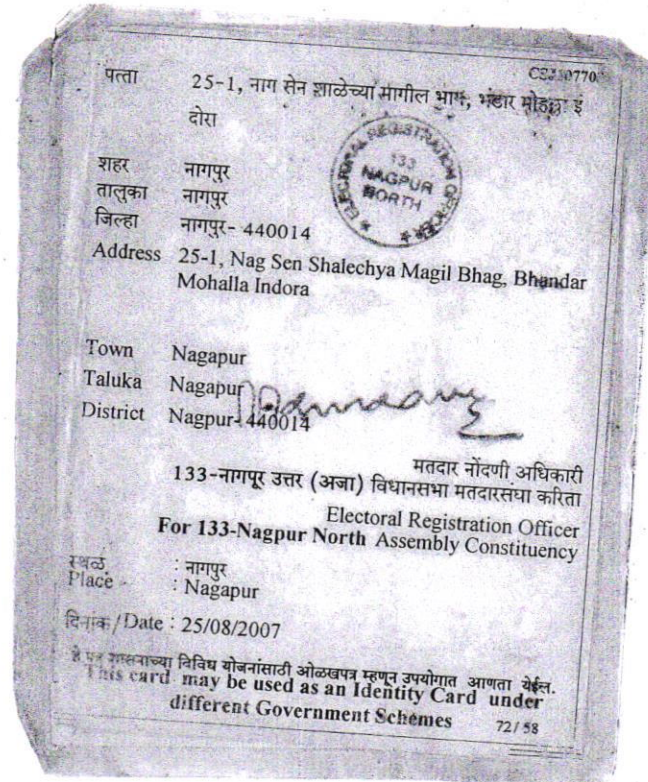 पत्ता 25-1, नाग सेन शाळेच्या मागील भाग, भंडार मोहल्ला इं
दोरा
ELECTORAL REGISTRATION OFFICER
133
NAGPUR
NORTH
शहर नागपुर
तालुका नागपुर
जिल्हा नागपुर- 440014
Address 25-1, Nag Sen Shalechya Magil Bhag, Bhandar
Mohalla Indora
Town Nagapur
Taluka Nagapur
District Nagpur-440014
मतदार नोंदणी अधिकारी
133-नागपूर उत्तर (अजा) विधानसभा मतदारसंघा करिता
Electoral Registration Officer
For 133-Nagpur North Assembly Constituency
स्थळ : नागपुर
Place : Nagapur
दिनांक/Date : 25/08/2007
हे पत्र शासनाच्या विविध योजनांसाठी ओळखपत्र म्हणून उपयोगात आणता येईल.
This card may be used as an Identity Card under
different Government Schemes 72/58